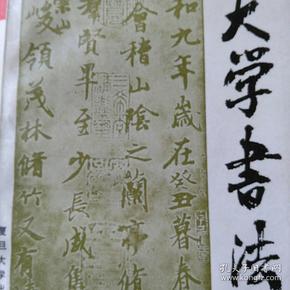 大学書法
和九年歲在癸丑暮春
會稽山陰之蘭亭脩
羣賢畢至少長咸集
崇山
峻領茂林脩竹又有
复旦大学